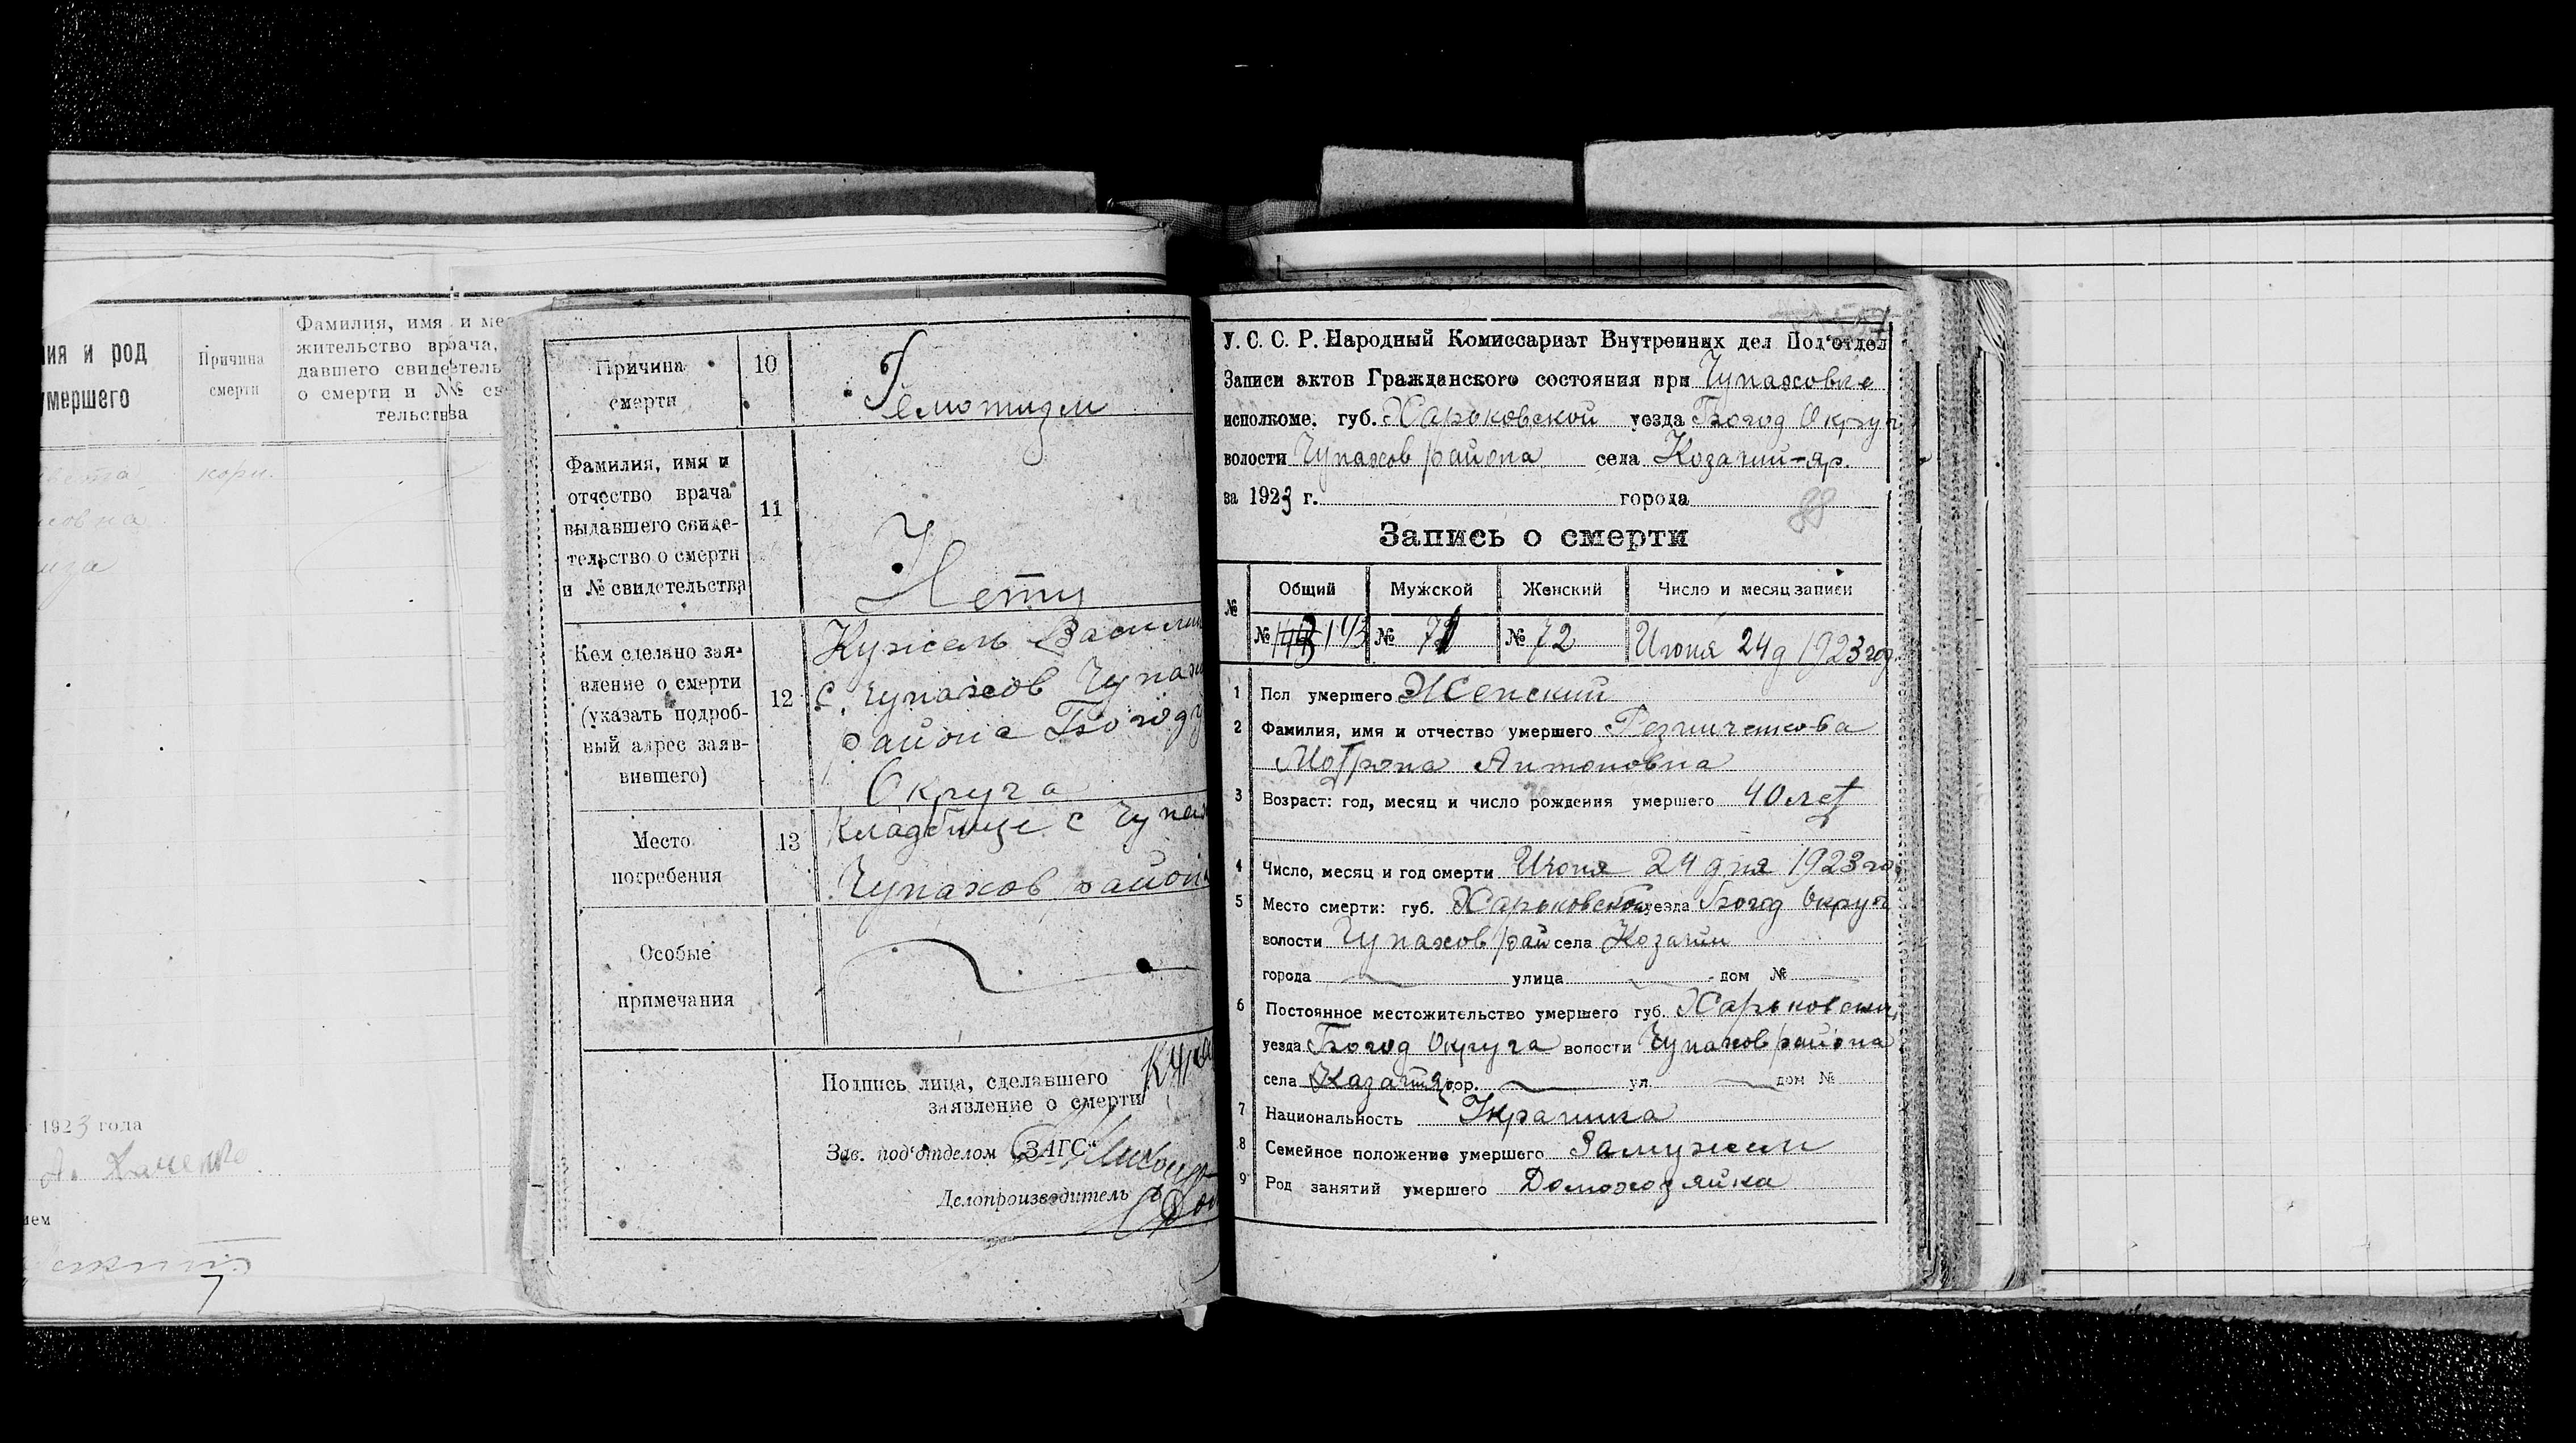 ия и род
умершего
Причина
смерти
Фамилия, имя и ме
жительство врача,
давшего свидетель
о смерти и №№ св
тельства
корп.
1923 года
Причина
смерти
10
Ревматизм
Фамилия, имя и
отчество врача
выдавшего свиде-
тельство о смерти
и № свидетельства
11
Нету
Кем сделано зая-
вление о смерти
(указать подроб-
ный адрес заяв-
вившего)
12
Кужель Васили
с. Чупахов Чупах
района Богоду
Округа
Место
погребения
13
Кладбище с Чупах
Чупахов район
Особые
примечания
Подпись лица, сделавшего
заявление о смерти
Зав. под'отделом „ЗАГС"
Делопроизводитель
У. С. С. Р. Народный Комиссариат Внутренних дел Под'отдел
Записи актов Гражданского состояния при Чупаховке
исполкоме. губ. Харьковской уезда Богод Округ
волости Чупахов района села Козачий-яр.
за 1923 г. города
88
Запись о смерти
№ Общий Мужской Женский Число и месяц записи
№ 143 № 71 № 72 Июня 24 д 1923 год
1 Пол умершего Женский
2 Фамилия, имя и отчество умершего Резниченкова
Мотрона Антоновна
3 Возраст: год, месяц и число рождения умершего 40 лет
4 Число, месяц и год смерти Июня 24 дня 1923 го
5 Место смерти: губ. Харьковской уезда Богод Округ
волости Чупахов рай села Козачий
города улица дом №
6 Постоянное местожительство умершего губ. Харьковской
уезда Богод Округа волости Чупахов района
села гор. ул. дом №
7 Национальность Украинка
8 Семейное положение умершего Замужем
9 Род занятий умершего Домохозяйка